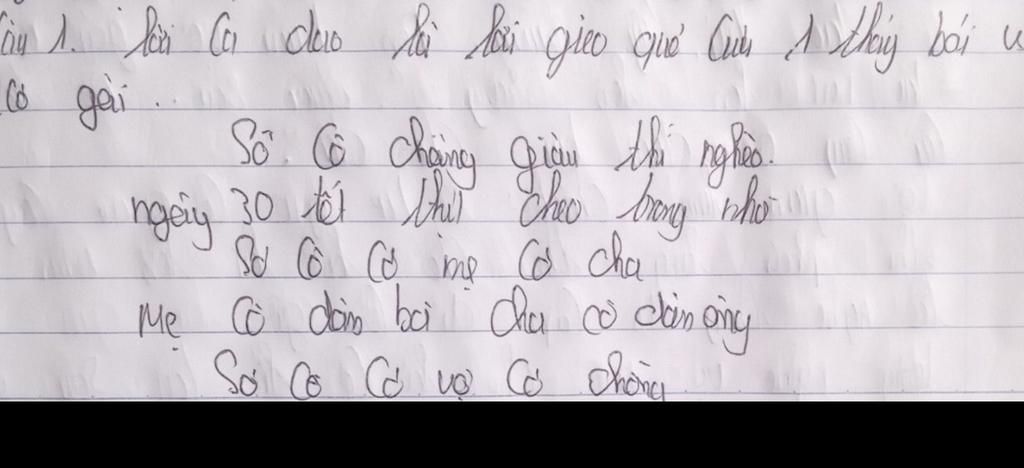 Câu 1. Bài ca dao là lời gieo quẻ của 1 thầy bói
cô gái..
Số cô chẳng giàu thì nghèo.
ngày 30 tết thịt cheo trong nhà
Số cô có mẹ có cha
Mẹ cô đàn bà cha cô đàn ông
Số cô có vợ có chồng